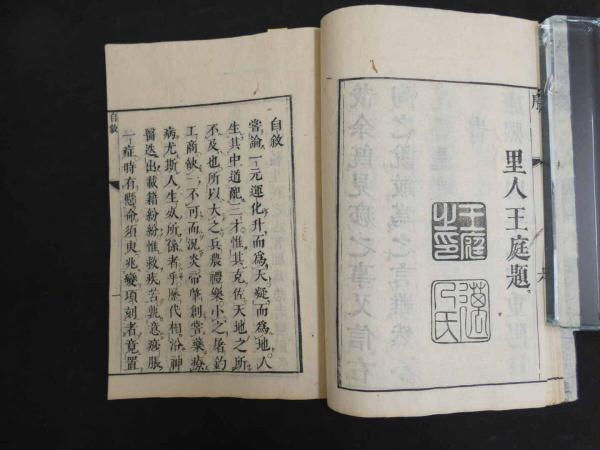 序
里人王庭題
王庭之印
邁人氏
自敘
自敘
嘗論一元運化升而為天凝而為地人
生其中道配三才惟其克佐天地之所
不及也所以大之兵農禮樂小之屠釣
工商缺一不可而況炎帝肇創嘗藥療
病尤斯人生所係者乎歷代相沿神
醫迭出載籍紛紛惟救疾苦詎意痧脹
一症時有懸命須臾兆變頃刻者竟置
一